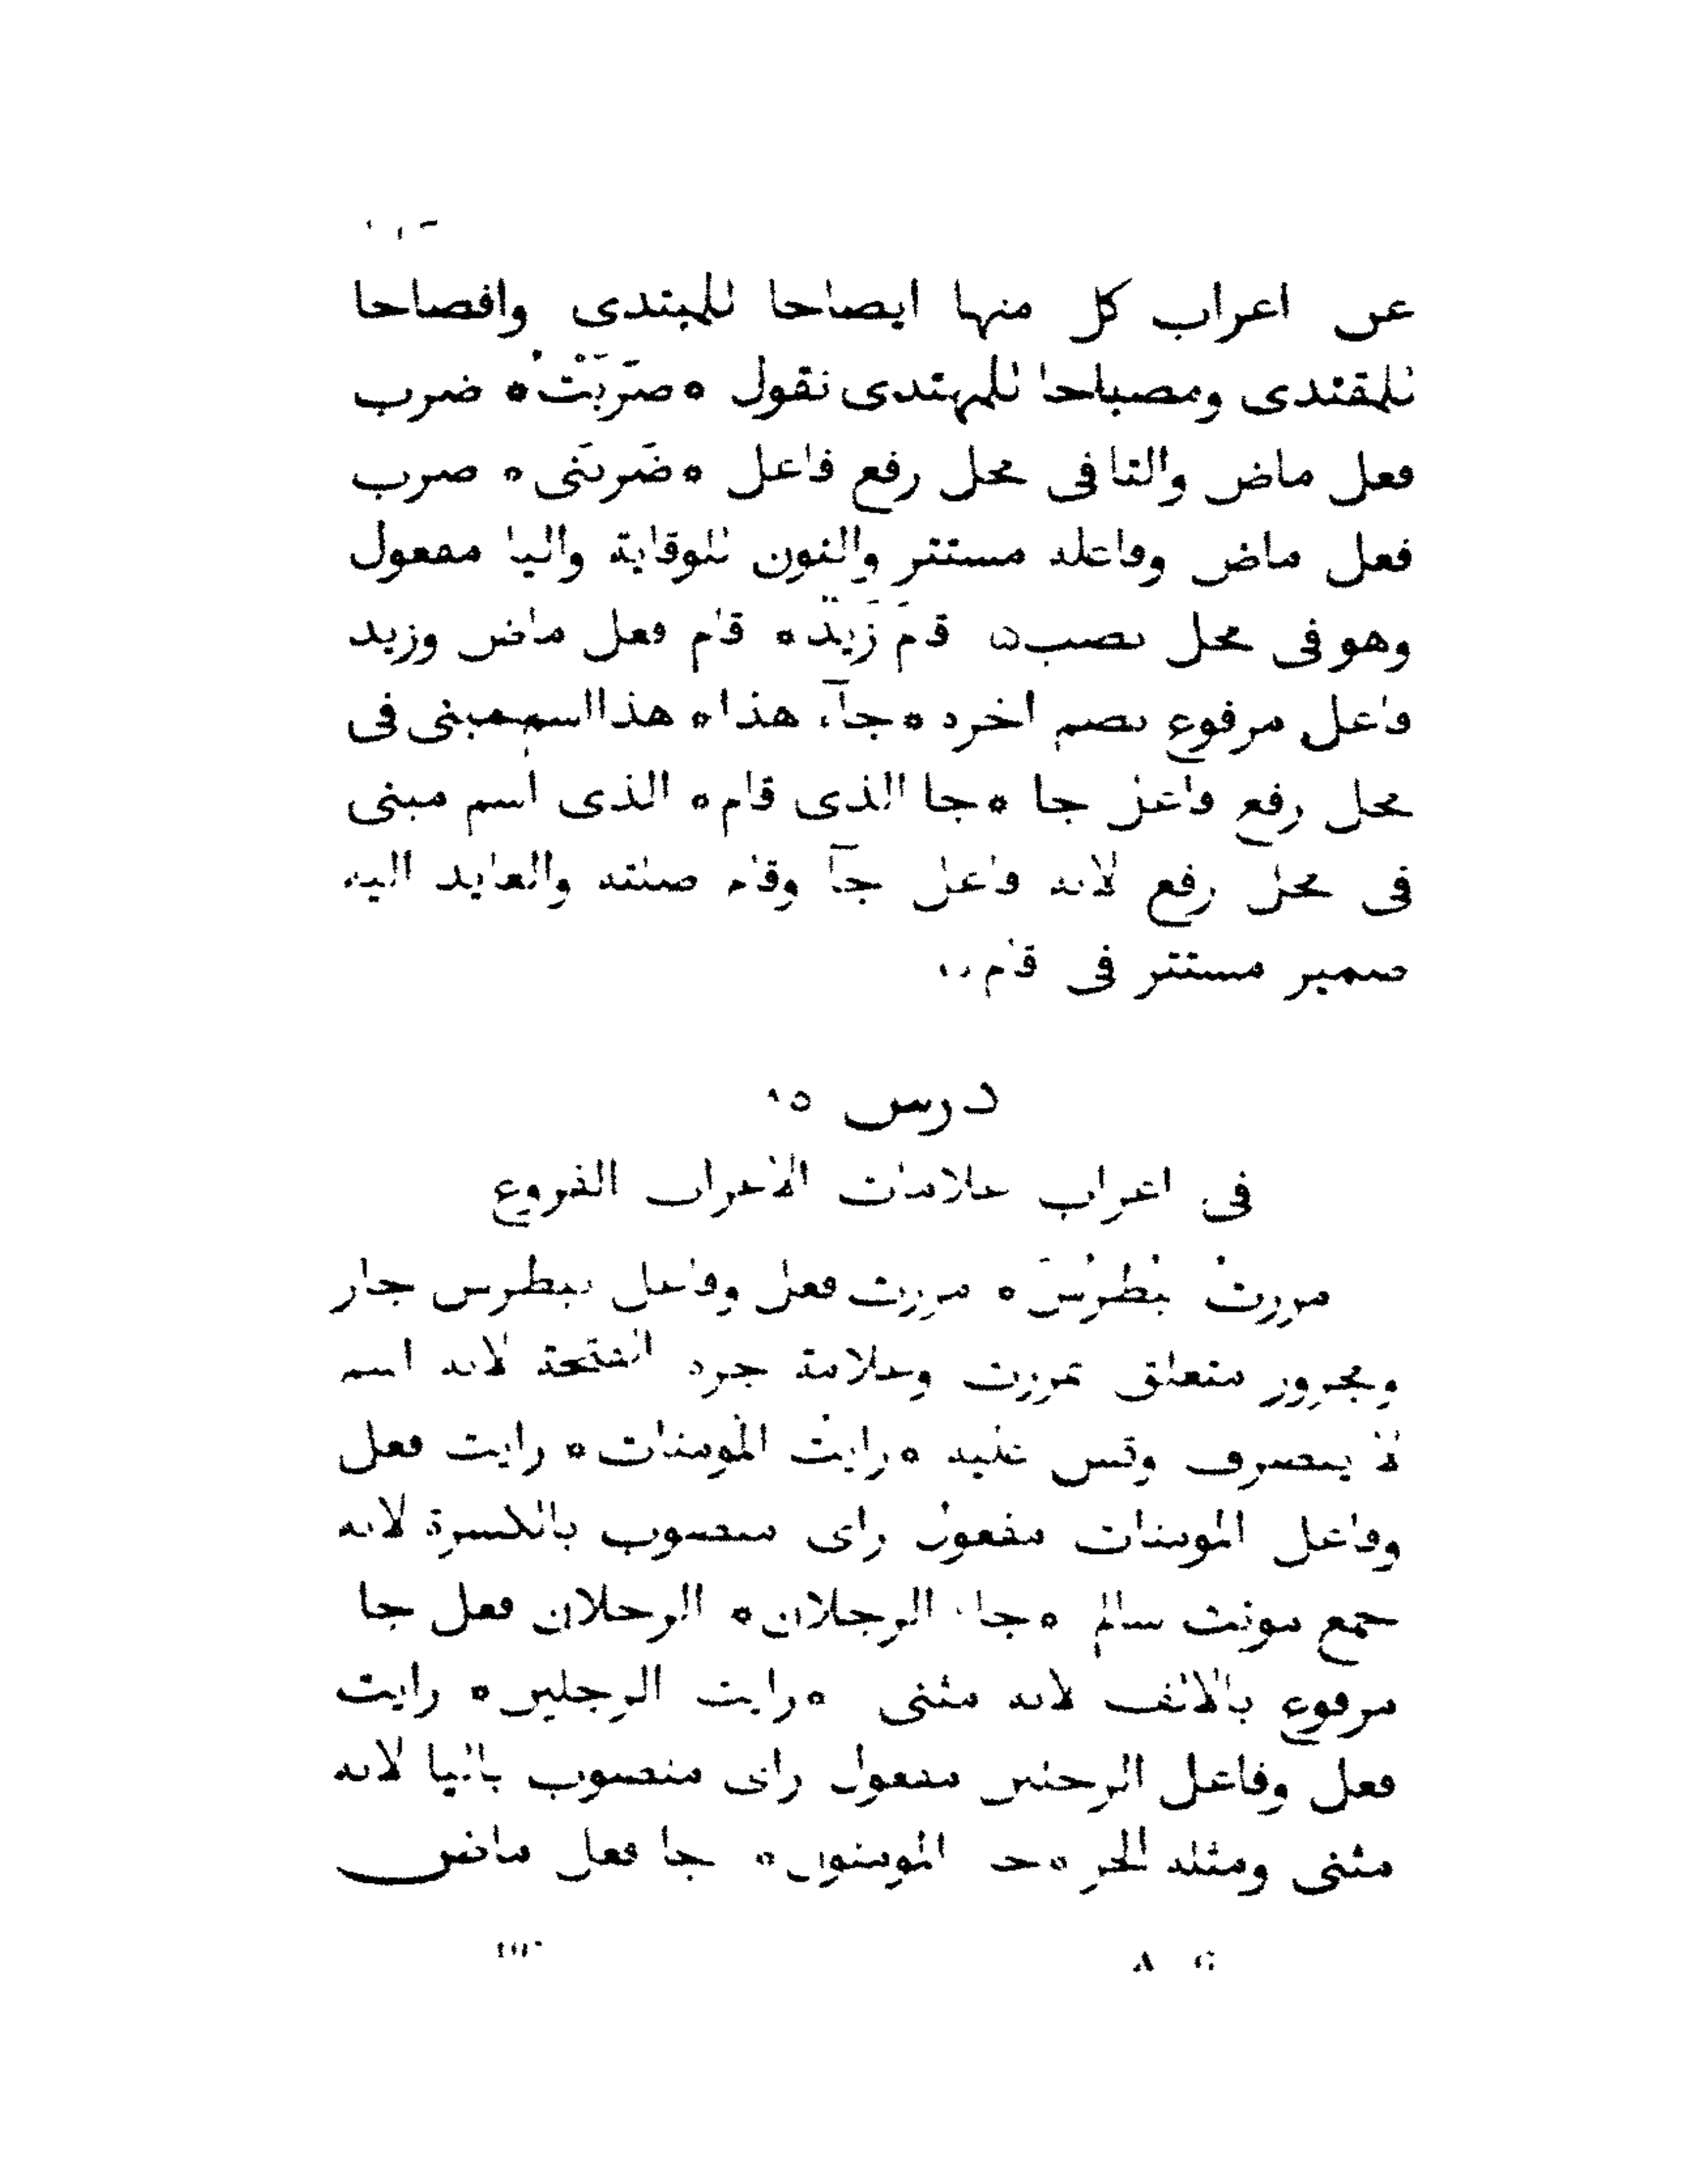 عن اعراب كل منها ايضاحا للمبتدى وافصاحا
للمقتدى ومصباحا للمهتدى نقول * ضَرَبْتُ * ضرب
فعل ماض والتا فى محل رفع فاعل * ضَرَبَنى * ضرب
فعل ماض وفاعله مستتر والنون للوقاية واليا مفعول
وهو فى محل نصب * قامَ زَيدٌ * قام فعل ماض وزيد
فاعل مرفوع بضم اخره * جآء هذا * هذا اسم مبنى فى
محل رفع فاعل جا * جا الذى قام * الذى اسم مبنى
فى محل رفع لانه فاعل جآ وقام صلته والعايد اليه
ضمير مستتر فى قام
درس
فى اعراب علامات الاعراب الفروع
مررتُ بُطرُسَ * مررت فعل وفاعل ببطرس جار
ومجرور متعلق بمررت وعلامة جره الفتحة لانه اسم
لا ينصرف وقس عليه * رايتُ المومنات * رايت فعل
وفاعل المومنات مفعول راى منصوب بالكسرة لانه
جمع مونث سالم * جا الرجلان * الرجلان فعل جا
مرفوع بالالف لانه مثنى * رايت الرجلين * رايت
فعل وفاعل الرجلين مفعول راى منصوب باليا لانه
مثنى ومثله الجر * جا المومنون * جا فعل ماض